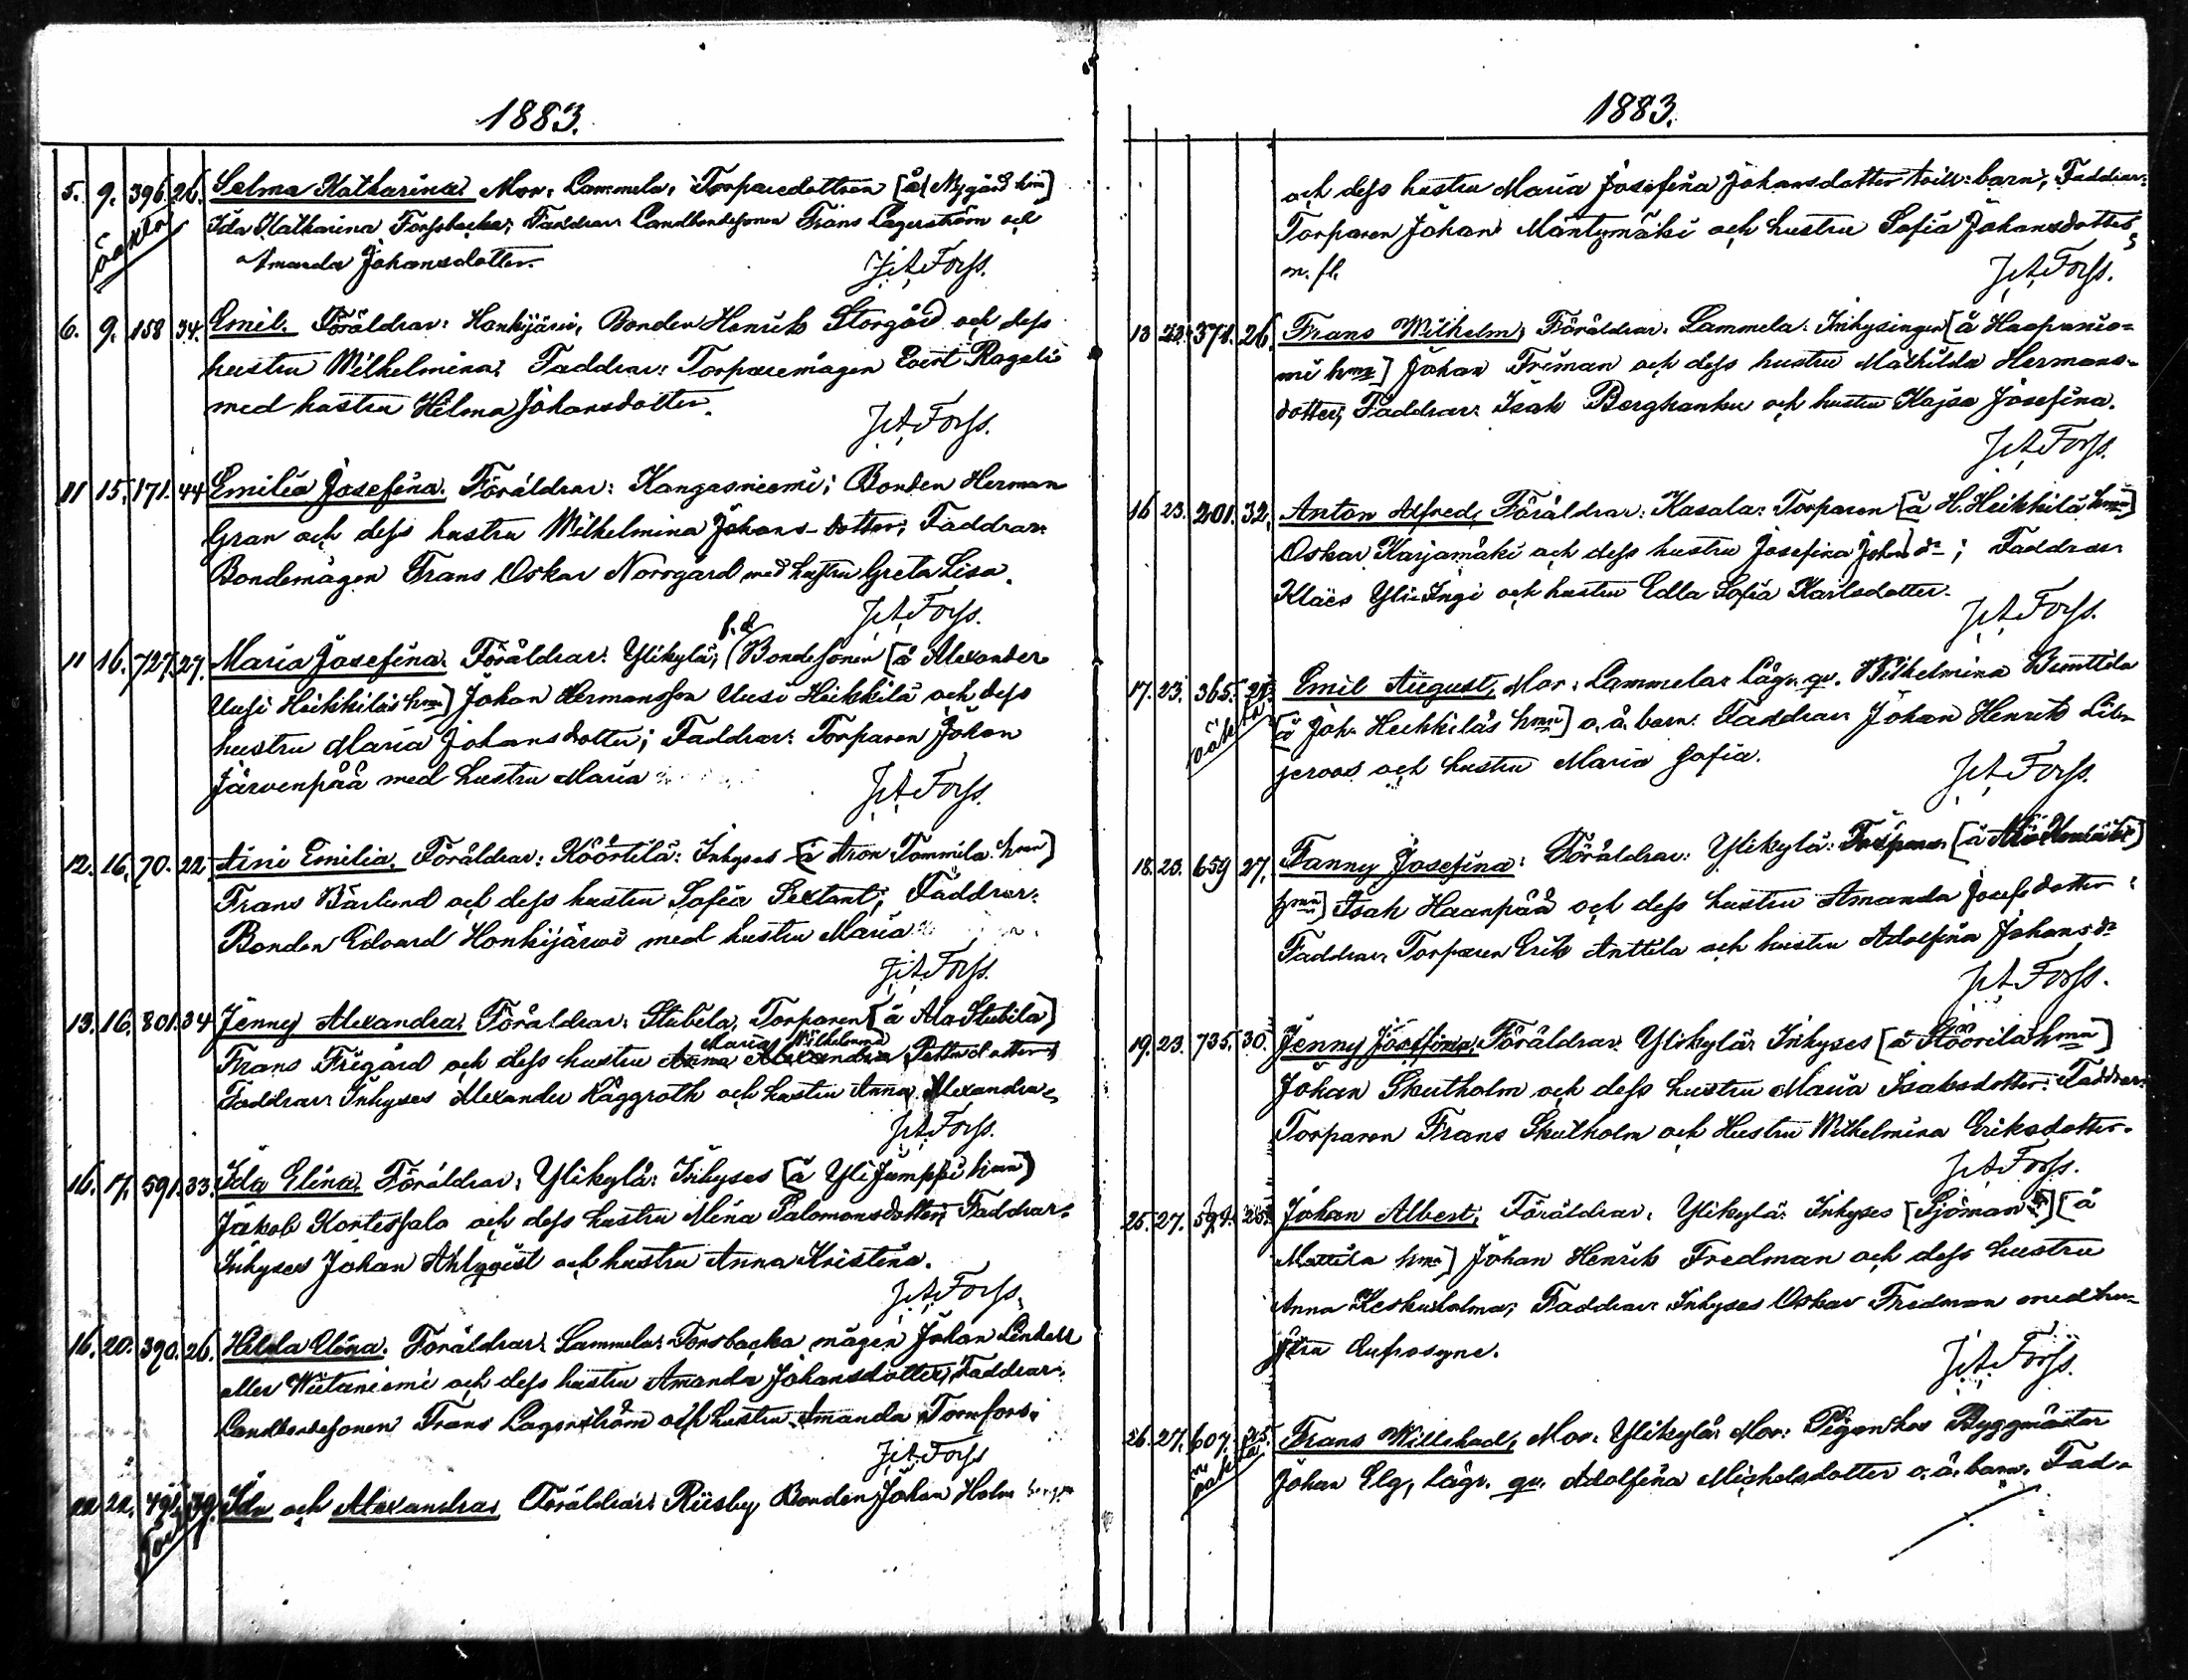 1883.
5. 9. 396. 26. Selma Katharina. Mor: Lammela, Torparedottren [å Nygård hmn]
oäkta
Ida Katharina Forssbacka; Faddrar Landbondesonen Frans Lagerström och
Amanda Johansdotter.
J. A. Forss.
6. 9. 158 34. Emil. Föräldrar: Honkijärvi, Bonden Henrik Storgård och dess
hustru Wilhelmina; Faddrar: Torparemågen Evert Rageli
med hustru Hilma Johansdotter.
J. A. Forss.
11 15. 171. 44 Emilia Josefina. Föräldrar: Kangasniemi; Bonden Herman
Gran och dess hustru Wilhelmina Johans-dotter; Faddrar:
Bondemågen Frans Oskar Norrgård med hustru Greta Lisa.
J. A. Forss.
f. d.
11 16. 727. 27. Maria Josefina. Föräldrar: Ylikylä; Bondesonen [å Alexander
Uusi Heikkilä's hmn] Johan Hermansson Uusi Heikkilä och dess
hustru Maria Johansdotter; Faddrar: Torparen Johan
Järvenpää med hustru Maria
J. A. Forss.
12. 16. 70. 22 Aini Emilia. Föräldrar: Köörtilä: Inhyses [å Aron Tommila hmn]
Frans Bärlund och dess hustru Sofia Sextant; Faddrar:
Bonden Edvard Honkijärvi med hustru Maria
J. A. Forss.
13. 16. 801. 34 Jenny Alexandra. Föräldrar: Stubela, Torparen [å Ala-Stubila]
Maria Wilhelmina
Frans Frigård och dess hustru Anna Alexandra Petterdotter
Faddrar: Inhyses Alexander Häggroth och hustru Anna Alexandra
J. A. Forss.
16. 17. 591. 33. Ida Elina. Föräldrar: Ylikylä: Inhyses [å Yli Jumppi hmn]
Jakob Kortessalo och dess hustru Mina Salomonsdotter; Faddrar:
Inhyses Johan Ahlqvist och hustru Anna Kristina.
J. A. Forss.
16. 20. 390. 26. Hilda Elina. Föräldrar: Lammela: Forsbacka mågen Johan Lindell
eller Wiitaniemi och dess hustru Amanda Johansdotter; Faddrar:
Landbondesonen Frans Lagerström och hustru Amanda Tornfors;
J. A. Forss
22 22. 491. 39. Ida och Alexandra. Föräldrar: Riisby Bonden Johan Holm
1883.
och dess hustru Maria Josefina Johansdotter tvill: barn; Faddrar:
Torparen Johan Mäntymäki och hustru Sofia Johansdotter,
m. fl.
J. A. Forss.
13 23. 371. 26. Frans Wilhelm; Föräldrar: Lammela: Inhysingen [å Haapanie=
mi hmn] Johan Friman och dess hustru Mathilda Hermans=
dotter; Faddrar: Isak Berghanku och hustru Kajsa Josefina.
J. A. Forss.
16 23. 201. 32. Anton Alfred; Föräldrar: Kasala: Torparen [å H. Heikkilä hmn]
Oskar Karjamäki och dess hustru Josefina Joh dr; Faddrar
Kläes Yli-Ingi och hustru Edla Sofia Karlsdotter.
J. A. Forss.
17. 23. 365. Emil August, Mor: Lammela: Läg. qv. Wilhelmina
oäkta
[å Joh. Heikkiläs hmn] o. ä. barn: Faddrar Johan Henrik Lil=
jeroos och hustru Maria Sofia.
J. A. Forss.
18. 23. 659 27. Fanny Josefina: Föräldrar: Ylikylä: Torparen [å
hmn] Isak Haanpää och dess hustru Amanda Josefsdotter:
Faddrar: Torparen Erik Anttila och hustru Adolfina Johansdr
J. A. Forss.
19. 23. 735. 30. Jenny Josefina. Föräldrar: Ylikylä: Inhyses [å Klöörilä hmn]
Johan Skutholm och dess hustru Maria Isaksdotter: Faddrar:
Torparen Frans Skutholm och Hustru Wilhelmina Eriksdotter.
J. A. Forss.
25. 27. Johan Albert; Föräldrar: Ylikylä: Inhyses [Sjöman] [å
Mattila hmn] Johan Henrik Fredman och dess hustru
Anna Keskuholma; Faddrar: Inhyses Oskar Fredman med hu=
stru Eufrosyne.
J. A. Forss.
26. 27. 607. 25. Frans Willehad, Mor: Ylikylä: Mor: Pigan hos Byggmäster
oäkta
Johan Elg, lägr. qv. Adolfina Michelsdotter o. ä. barn. Fad=